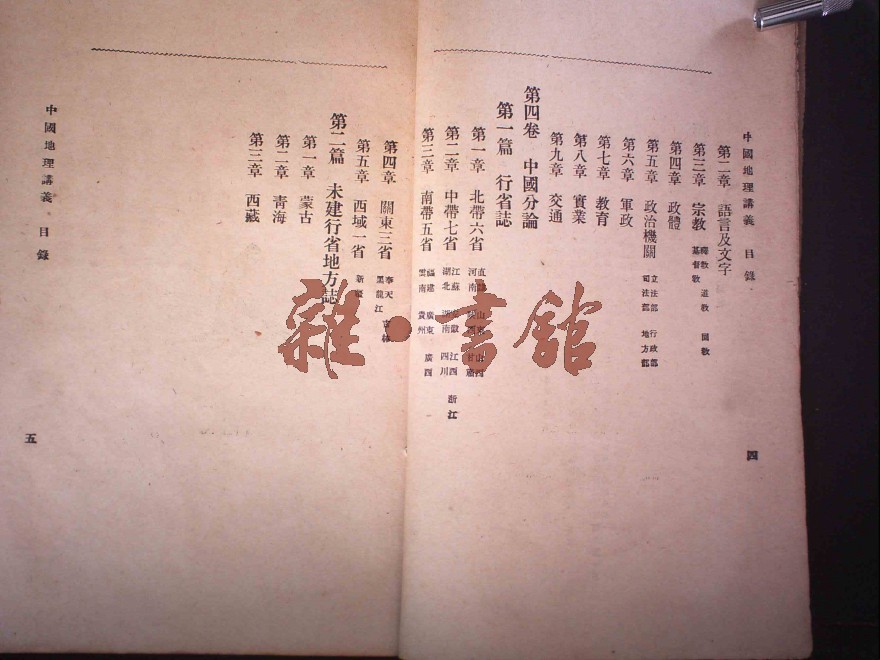 中國地理講義 目錄
第二章 語言及文字
第三章 宗教 釋教 道教 回教
基督教
第四章 政體
第五章 政治機關 立法部 行政部
司法部 地方部
第六章 軍政
第七章 教育
第八章 實業
第九章 交通
第四卷 中國分論
第一篇 行省誌
第一章 北帶六省 直隸 山東 山西
河南 陝西 甘肅
第二章 中帶七省 江蘇 安徽 江西 浙江
湖北 湖南 四川
第三章 南帶五省 福建 廣東 廣西
雲南 貴州
四
第四章 關東三省 奉天 吉林
黑龍江
第五章 西域一省 新疆
第二篇 未建行省地方誌
第一章 蒙古
第二章 青海
第三章 西藏
中國地理講義 目錄
五
雜·書館